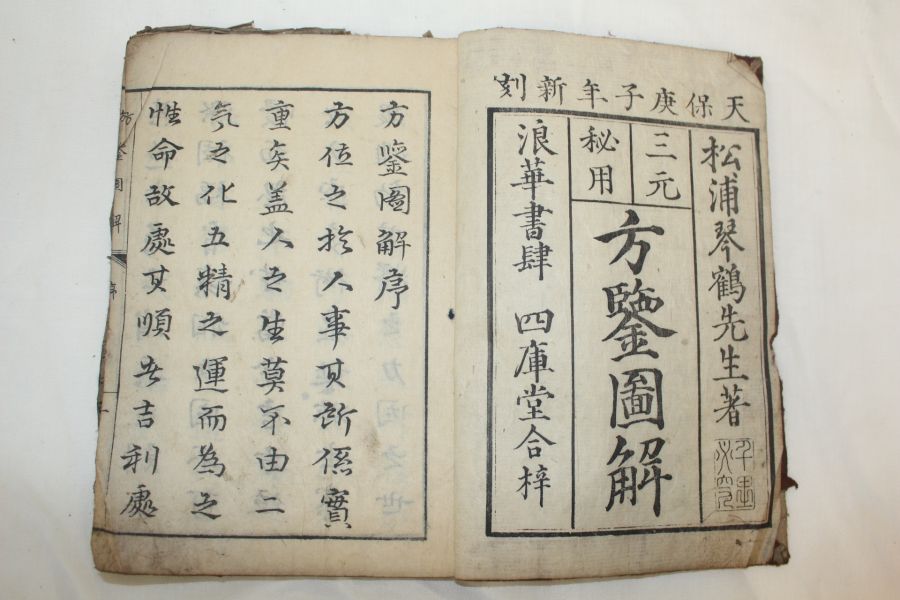 天保庚子年新刻
松浦琴鶴先生著
三元
秘用
方鑒圖解
浪華書肆 四庫堂合梓
方鑒圖解序
方位之於人事其所係實
重矣蓋人之生莫不由二
氣之化五精之運而為之
性命故處其順者吉利處
方鑒圖解 序